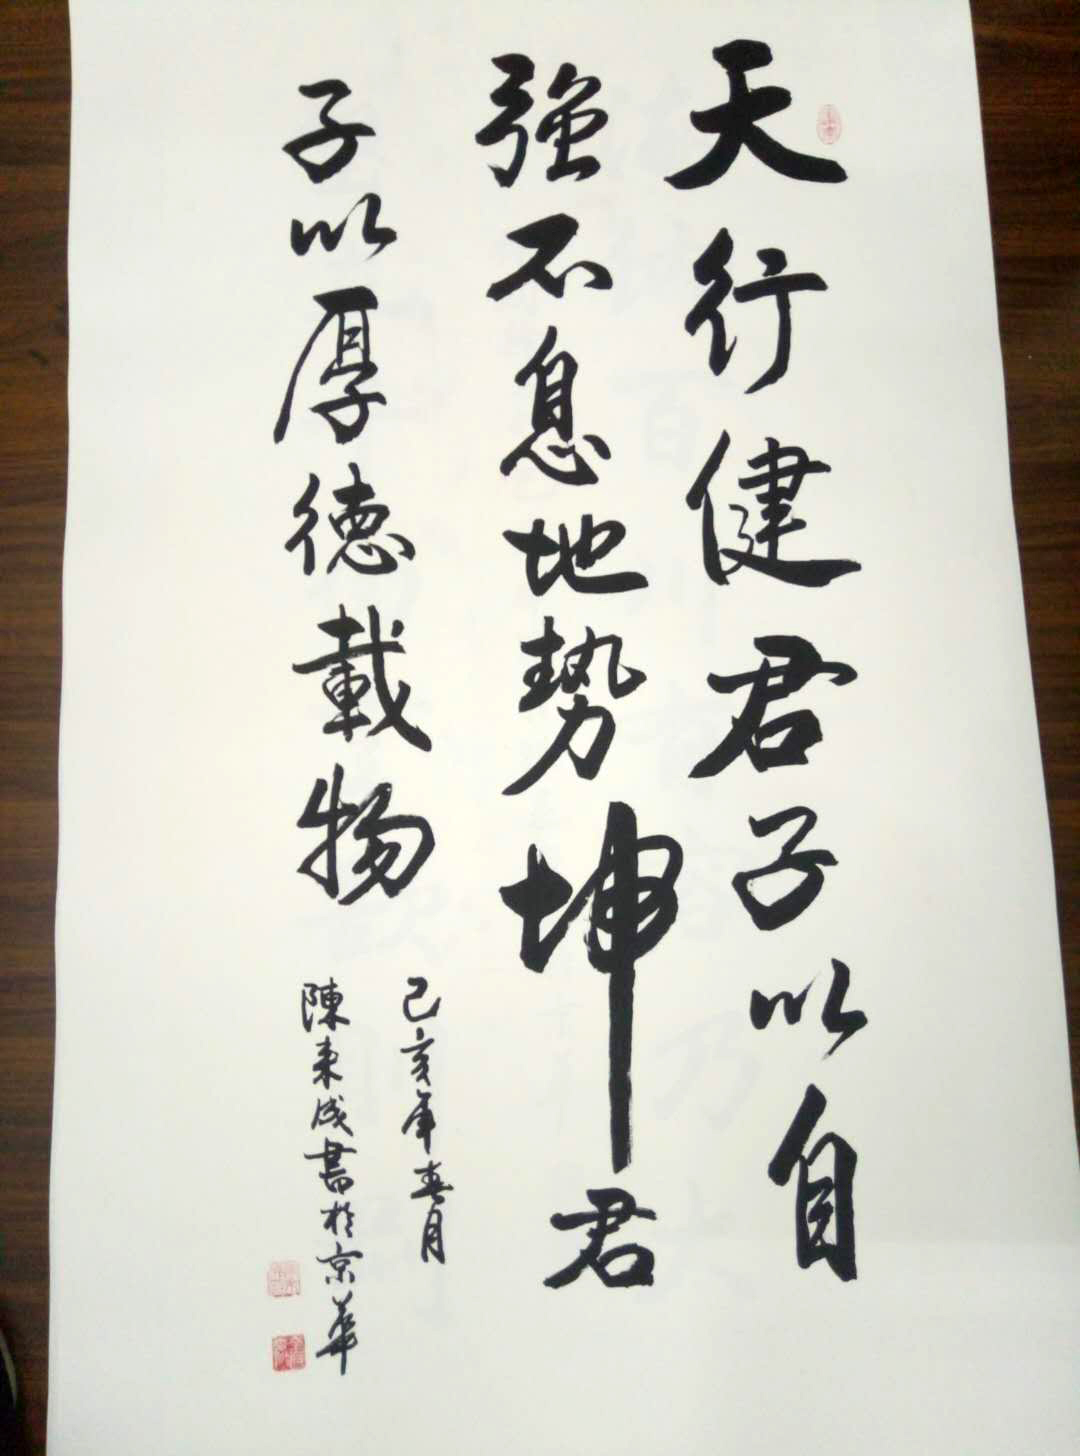 天行健君子以自
強不息地势坤君
子以厚德載物
己亥年春月
陳来成書於京華